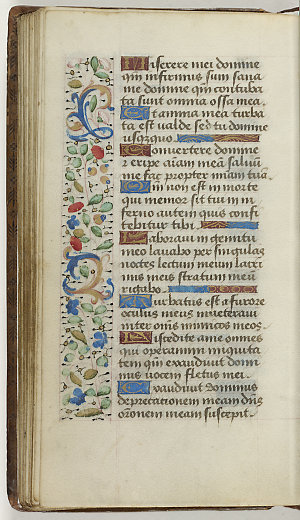 Miserere mei domine
qm̄ infirmus sum sana
me domine qm̄ conturba
ta sunt omnia ossa mea.
Et anima mea turba
ta est valde sed tu domine
usquequo.
Convertere domine
et eripe aīam meā salvū
me fac propter mīam tuā.
Qm̄ non est in morte
qui memor sit tui in in
ferno autem quis confi
tebitur tibi.
Laboravi in gemitu
meo lavabo per singulas
noctes lectum meum lacri
mis meis stratum meū
rigabo.
Turbatus est a furore
oculus meus inveteravi
inter om̄s inimicos meos.
Discedite a me omnes
qui operamini iniquita
tem qm̄ exaudivit domi
nus vocem fletus mei.
Exaudivit dominus
deprecationem meam dn̄s
orōnem meam suscepit.